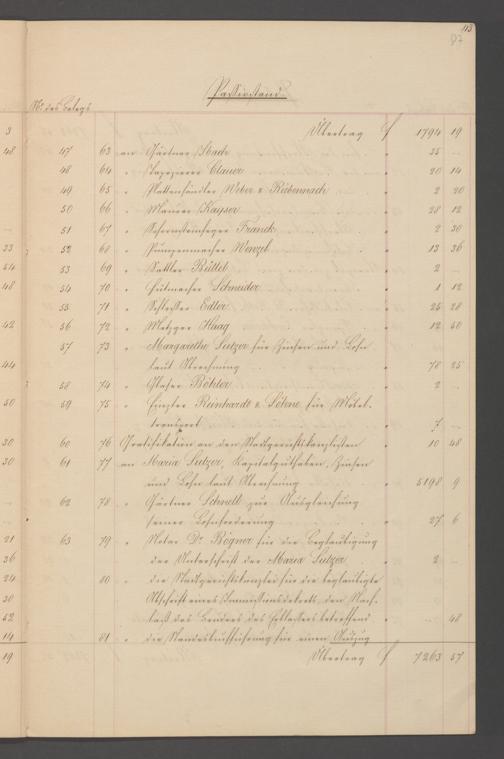 113
97
Passivstand
No des Belegs
3 Übertrag f 1794 19
48 47 63 an Gärtner Stade " 35 —
48 64 " Tapezierer Clauer " 20 14
49 65 " Plattenhändler Weber & Rübennach " 2 20
50 66 " Maurer Kayser " 28 12
51 67 " Schornsteinfeger Franck " 2 30
33 52 68 " Pumpenmacher Wenzel " 13 36
54 53 69 " Sattler Büttel " 2 —
48 54 70 " Hutmacher Schneider " 1 12
55 71 " Schlosser Edler " 25 28
42 56 72 " Metzger Haag " 12 50
57 73 " Margarethe Sulzer für Zinsen und Lohn
44 laut Abrechnung " 78 25
58 74 " Glaser Böhler " 2 —
50 59 75 " Reinhardt & Söhne für Möbel-
transport " 7 —
30 60 76 Gratifikation an den Stadtgerichtskanzlisten " 10 48
30 61 77 an Maria Sulzer, Kapitalguthaben, Zinsen
und Lohn laut Abrechnung " 5198 9
62 78 " Gärtner Schnell zur Ausgleichung
seiner Lohnforderung " 27 6
21 63 79 " Notar Dr. Rögner für die Beglaubigung
36 der Unterschrift der Maria Sulzer " 2 —
24 80 " die Stadtgerichtskanzlei für die beglaubigte
30 Abschrift eines Immissionsdekrets, den Nach-
52 laß des Bruders des Erblassers betreffend " — 48
14 81 " die Standesbuchführung für einen Auszug
19 Übertrag f 7263 57